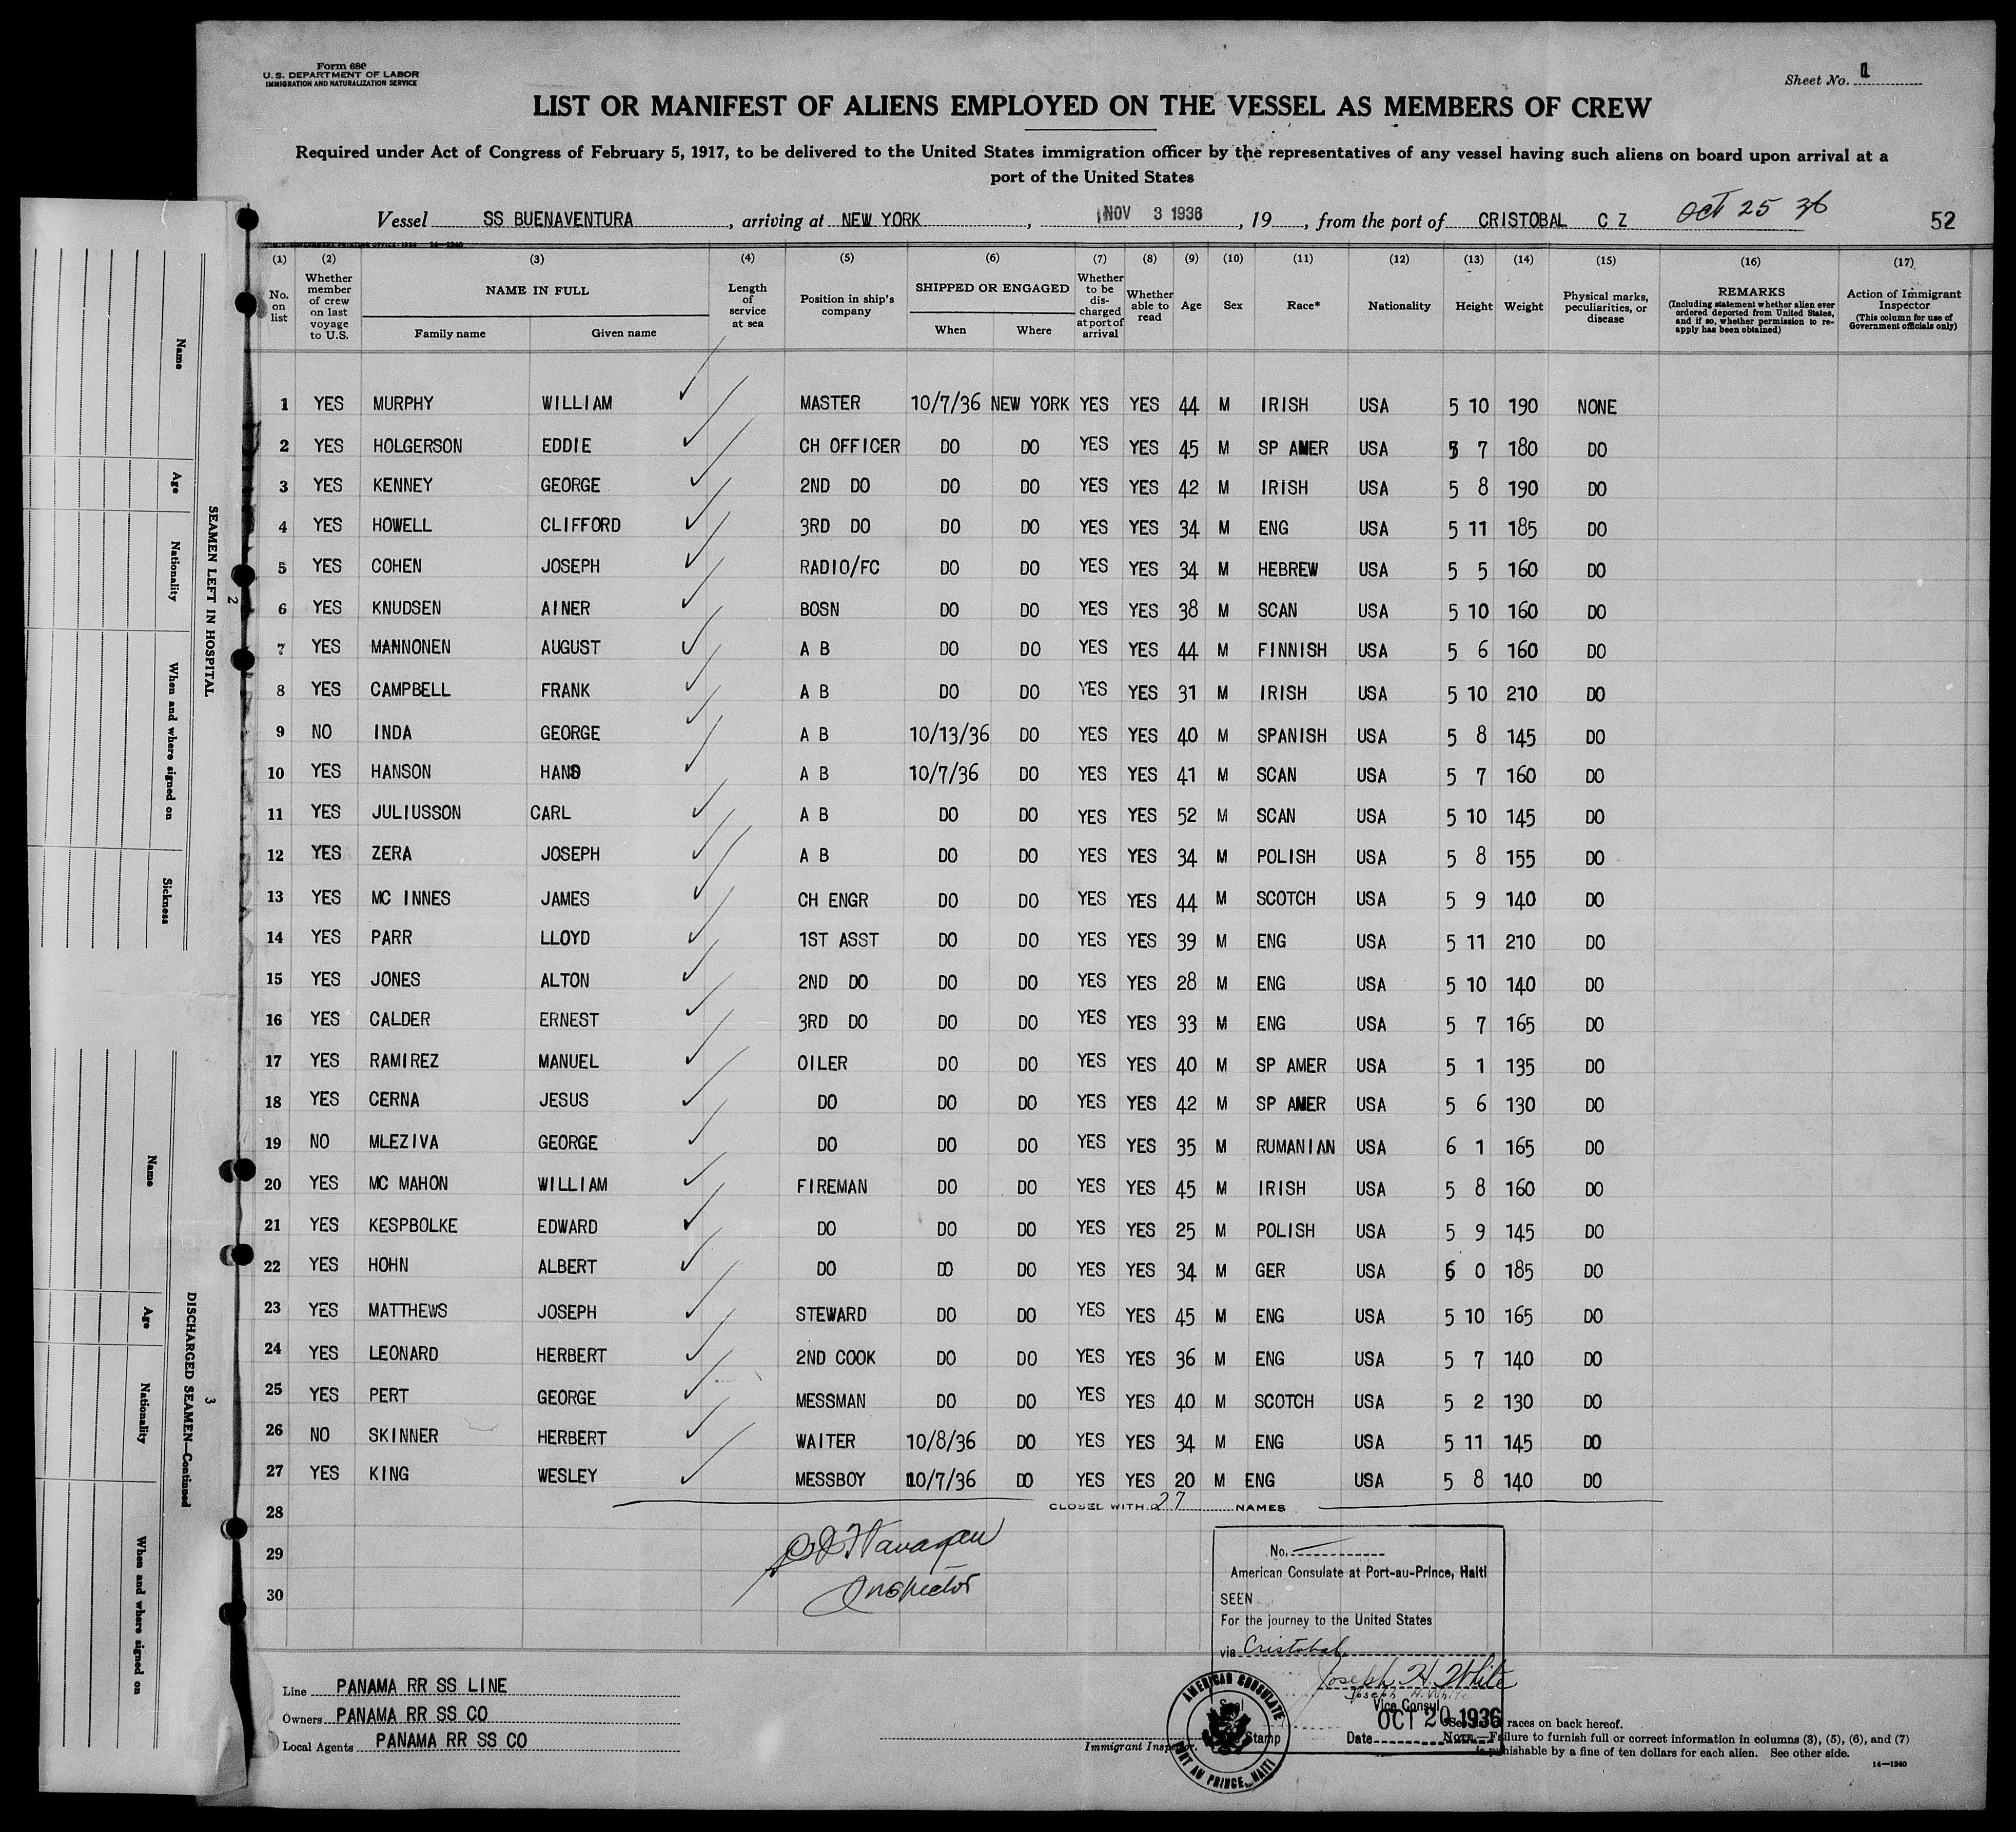 Form 680
U. S. DEPARTMENT OF LABOR
IMMIGRATION AND NATURALIZATION SERVICE
Sheet No. 1
LIST OR MANIFEST OF ALIENS EMPLOYED ON THE VESSEL AS MEMBERS OF CREW
Required under Act of Congress of February 5, 1917, to be delivered to the United States immigration officer by the representatives of any vessel having such aliens on board upon arrival at a
port of the United States
Vessel SS BUENAVENTURA, arriving at NEW YORK, NOV 3 1936, 19, from the port of CRISTOBAL C Z Oct 25 36 52
(1) (2) (3) (4) (5) (6) (7) (8) (9) (10) (11) (12) (13) (14) (15) (16) (17)
No. on list
Whether member of crew on last voyage to U.S.
NAME IN FULL
Family name
Given name
Length of service at sea
Position in ship's company
SHIPPED OR ENGAGED
When
Where
Whether to be discharged at port of arrival
Whether able to read
Age
Sex
Race*
Nationality
Height
Weight
Physical marks, peculiarities, or disease
REMARKS
(Including statement whether alien ever ordered deported from United States, and if so, whether permission to re-apply has been obtained)
Action of Immigrant Inspector
(This column for use of Government officials only)
1 YES MURPHY WILLIAM MASTER 10/7/36 NEW YORK YES YES 44 M IRISH USA 5 10 190 NONE
2 YES HOLGERSON EDDIE CH OFFICER DO DO YES YES 45 M SP AMER USA 5 7 180 DO
3 YES KENNEY GEORGE 2ND DO DO DO YES YES 42 M IRISH USA 5 8 190 DO
4 YES HOWELL CLIFFORD 3RD DO DO DO YES YES 34 M ENG USA 5 11 185 DO
5 YES COHEN JOSEPH RADIO/FC DO DO YES YES 34 M HEBREW USA 5 5 160 DO
6 YES KNUDSEN AINER BOSN DO DO YES YES 38 M SCAN USA 5 10 160 DO
7 YES MANNONEN AUGUST A B DO DO YES YES 44 M FINNISH USA 5 6 160 DO
8 YES CAMPBELL FRANK A B DO DO YES YES 31 M IRISH USA 5 10 210 DO
9 NO INDA GEORGE A B 10/13/36 DO YES YES 40 M SPANISH USA 5 8 145 DO
10 YES HANSON HANS A B 10/7/36 DO YES YES 41 M SCAN USA 5 7 160 DO
11 YES JULIUSSON CARL A B DO DO YES YES 52 M SCAN USA 5 10 145 DO
12 YES ZERA JOSEPH A B DO DO YES YES 34 M POLISH USA 5 8 155 DO
13 YES MC INNES JAMES CH ENGR DO DO YES YES 44 M SCOTCH USA 5 9 140 DO
14 YES PARR LLOYD 1ST ASST DO DO YES YES 39 M ENG USA 5 11 210 DO
15 YES JONES ALTON 2ND DO DO DO YES YES 28 M ENG USA 5 10 140 DO
16 YES CALDER ERNEST 3RD DO DO DO YES YES 33 M ENG USA 5 7 165 DO
17 YES RAMIREZ MANUEL OILER DO DO YES YES 40 M SP AMER USA 5 1 135 DO
18 YES CERNA JESUS DO DO DO YES YES 42 M SP AMER USA 5 6 130 DO
19 NO MLEZIVA GEORGE DO DO DO YES YES 35 M RUMANIAN USA 6 1 165 DO
20 YES MC MAHON WILLIAM FIREMAN DO DO YES YES 45 M IRISH USA 5 8 160 DO
21 YES KESPBOLKE EDWARD DO DO DO YES YES 25 M POLISH USA 5 9 145 DO
22 YES HOHN ALBERT DO DO DO YES YES 34 M GER USA 6 0 185 DO
23 YES MATTHEWS JOSEPH STEWARD DO DO YES YES 45 M ENG USA 5 10 165 DO
24 YES LEONARD HERBERT 2ND COOK DO DO YES YES 36 M ENG USA 5 7 140 DO
25 YES PERT GEORGE MESSMAN DO DO YES YES 40 M SCOTCH USA 5 2 130 DO
26 NO SKINNER HERBERT WAITER 10/8/36 DO YES YES 34 M ENG USA 5 11 145 DO
27 YES KING WESLEY MESSBOY 10/7/36 DO YES YES 20 M ENG USA 5 8 140 DO
28 CLOSED WITH 27 NAMES
29
30
Inspector
No.
American Consulate at Port-au-Prince, Haiti
SEEN
For the journey to the United States
via Cristobal
Joseph H. White
Joseph H. White
Vice Consul
Seal
Stamp
Date OCT 20 1936
AMERICAN CONSULATE
PORT AU PRINCE, HAITI
Line PANAMA RR SS LINE
Owners PANAMA RR SS CO
Local Agents PANAMA RR SS CO
Immigrant Inspector.
races on back hereof.
NOTE.—Failure to furnish full or correct information in columns (3), (5), (6), and (7)
is punishable by a fine of ten dollars for each alien. See other side.
14—1240
SEAMEN LEFT IN HOSPITAL
2
Name
Age
Nationality
When and where signed on
Sickness
DISCHARGED SEAMEN—Continued
3
Name
Age
Nationality
When and where signed on